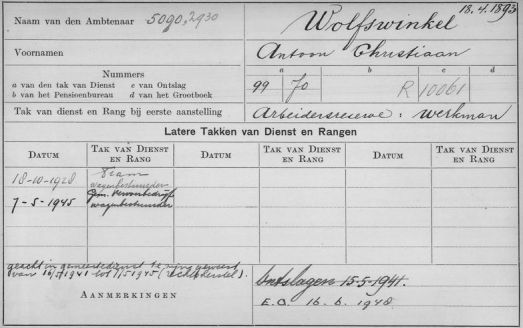 Naam van den Ambtenaar 5090, 2930
Wolfswinkel 18.4.1893
Voornamen
Antoon Christiaan
Nummers
a van den tak van Dienst c van Ontslag
b van het Pensioenbureau d van het Grootboek
a b c d
99 70 R 10061
Tak van dienst en Rang bij eerste aanstelling
Arbeidersreserve: werkman
Latere Takken van Dienst en Rangen
Datum Tak van Dienst en Rang Datum Tak van Dienst en Rang Datum Tak van Dienst en Rang
18-10-1928 Tram
wagenbestuurder
7-5-1945 Gem. Vervoerbedrijf
wagenbestuurder
geacht in gemeentedienst te zijn geweest
van 16/5/1941 tot 7/5/1945 (rechtsherstel).
Aanmerkingen
Ontslagen 15-5-1941.
E.O. 16.6.1948